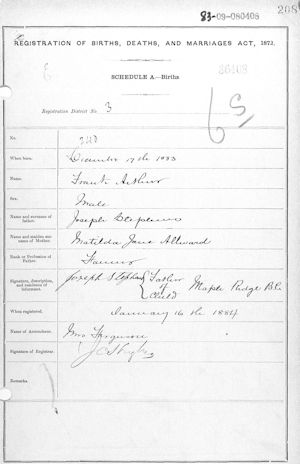 208
83-09-080408
REGISTRATION OF BIRTHS, DEATHS, AND MARRIAGES ACT, 1872.
SCHEDULE A.—Births
86408
Registration District No. 3
No.
When born. December 17th 1883
Name. Frank Arthur
Sex. Male
Name and surname of Father. Joseph Stephens
Name and maiden surname of Mother. Matilda Jane Allward
Rank or Profession of Father. Farmer
Signature, description, and residence of informant. Joseph Stephens { Father of Child Maple Ridge B.C.
When registered. January 16th 1884
Name of Accoucheur. Mrs Ferguson
Signature of Registrar.
Remarks.